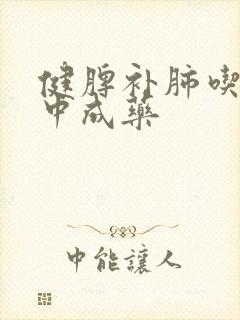 健脾补肺喫
中成藥
中能讓人